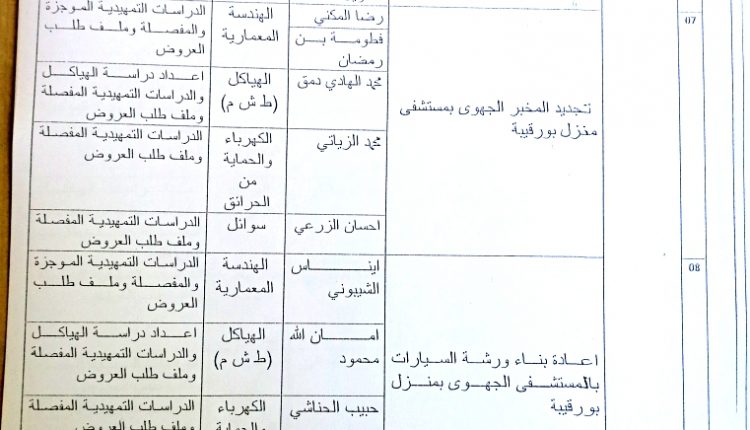 07
تجديد المخبر الجهوى بمستشفى
منزل بورقيبة
رضا المكني
فطومـة بـن
رمضان
الهندسة
المعمارية
الدراسات التمهيدية الموجزة
والمفصلة وملف طلب
العروض
محمد الهادي دمق
الهياكل
(ط ش م)
اعداد دراسة الهياكل
والدراسات التمهيدية المفصلة
وملف طلب العروض
محمد الزياتي
الكهرباء
والحماية
من
الحرائق
الدراسات التمهيدية المفصلة
وملف طلب العروض
احسان الزرعي
سوائل
الدراسات التمهيدية المفصلة
وملف طلب العروض
08
اعادة بناء ورشة السيارات
بالمستشفى الجهوى بمنزل
بورقيبة
اينـاس
الشيبوني
الهندسة
المعمارية
الدراسات التمهيدية الموجزة
والمفصلة وملف طلب
العروض
امـان الله
محمود
الهياكل
(ط ش م)
اعداد دراسة الهياكل
والدراسات التمهيدية المفصلة
وملف طلب العروض
حبيب الحناشي
الكهرباء
والحماية
الدراسات التمهيدية المفصلة
وملف طلب العروض